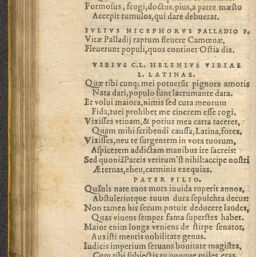 Formosus, frugi, doctus, pius, a patre mœsto
Accepit tumulos, qui dare debuerat.
IVLIVS NICEPHORVS PALLADIO F.
Vitæ Palladij raptum fleuere Camenæ,
Fleuerunt populi, quos continet Ostia dia.
VIBIVS C.L. HELENIVS VIBIAE
L. LATINAE.
Quæ tibi cunq; mei potuerūt pignora amoris
Nata dari, populo sunt lacrumante data.
Et volui maiora, nimis sed cura meorum
Fida, tuei prohibet me cinerem esse rogi.
Vixisses vtinam, & potius mea carta taceret,
Quam mihi scribendi caussa, Latina, fores,
Vixisses, neu te surgentem in vota tuorum,
Aspicerem addictam manibus ire faceis
Sed quoniā Parcis veritum'st nihil: accipe nostri
Æternas, eheu, carminis exequias.
PATER FILIO.
Quāuis nate tuos mors inuida ruperit annos,
Abstulerintque tuum dura sepulchra decus:
Non tamen his secum potuit deducere laudes,
Quas viuens semper fama superstes habet.
Maior enim longa veniens de stirpe senator,
Auxisti mentis nobilitate genus.
Iudicis imperium seruans bonitate magistra,
Cum tibi subiectis tu quoque miles eras.